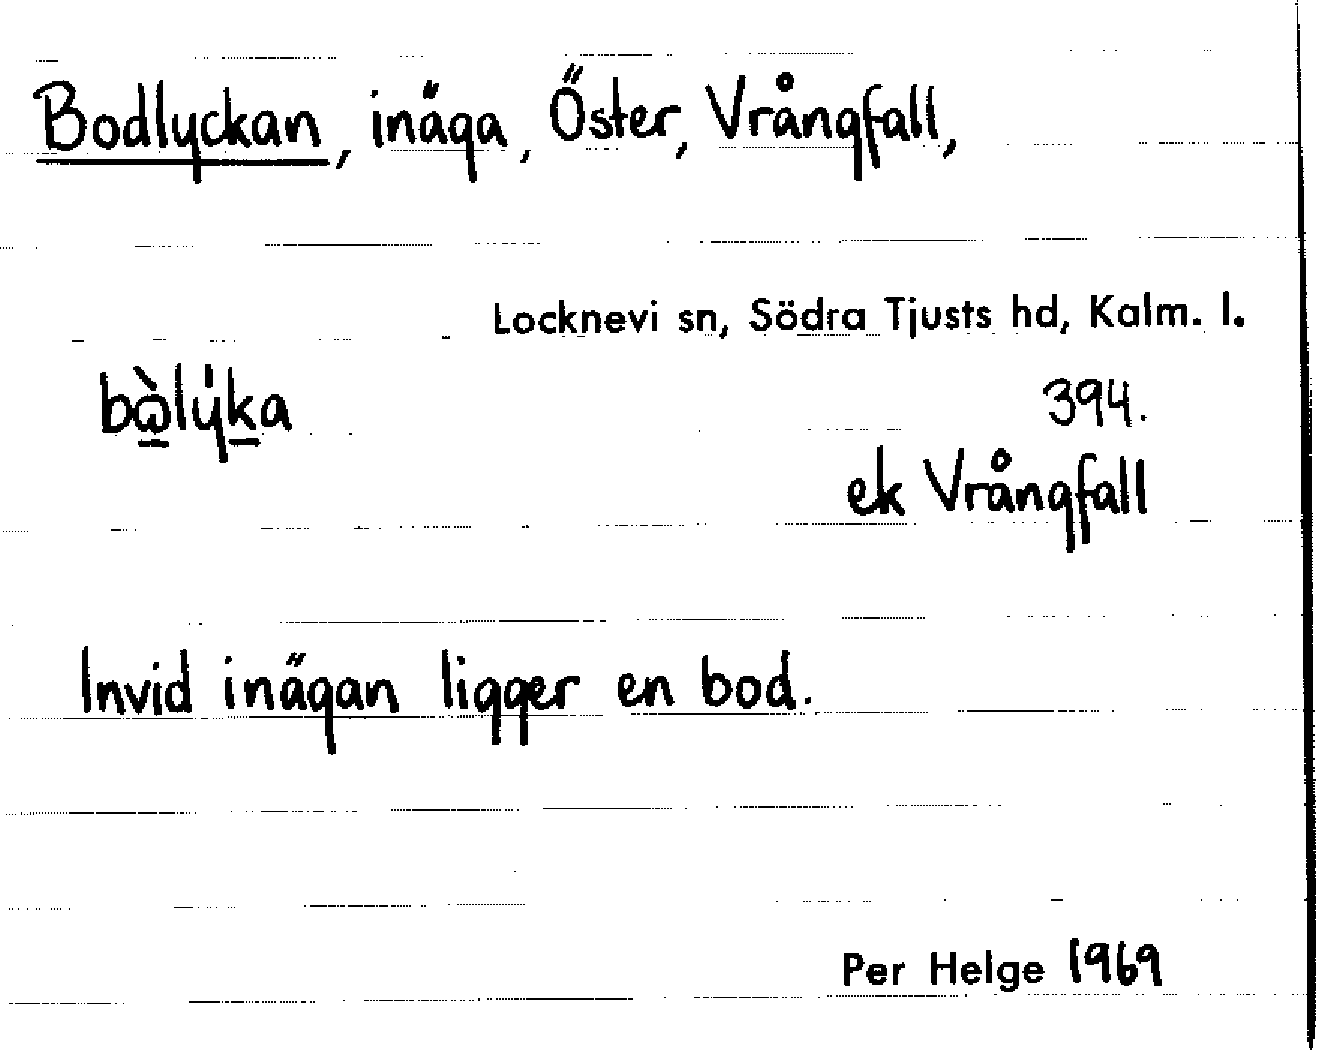 Bodlyckan, inäga, Öster, Vrångfall,
Locknevi sn, Södra Tjusts hd, Kalm. l.
bὼ̲ly̍k̲a
394.
ek Vrångfall
Invid inägan ligger en bod.
Per Helge 1969